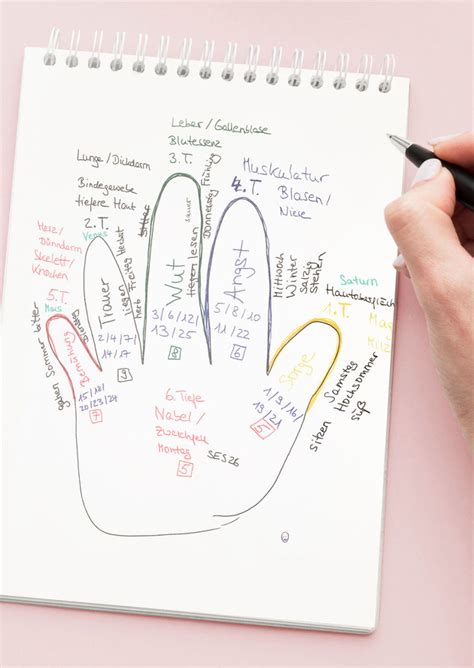 Leber / Gallenblase
Blutessenz
3. T.
Frühling
Donnerstag
sauer
Lunge / Dickdarm
Bindegewebe
tiefere Haut
2. T.
Venus
Muskulatur
4. T.
Blasen /
Niere
Herz /
Dünndarm
Skelett /
Knochen
5. T.
Mars
gehen Sommer bitter
Dienstag
15/18/
20/23/24
7
Trauer
2/4/7/
14/17
9
liegen
Freitag
Herbst
herb
Wut
lesen
3/6/12/
13/25
8
Angst
5/8/10
11/22
6
Mittwoch
Winter
Salzig
Stehen
Saturn
1. T.
Mag
Milz
Sorge
1/9/16/
19/21
5
Samstag
Hochsommer
süß
sitzen
6. Tiefe
Nabel /
Zwerchfell
Montag
5
SES26